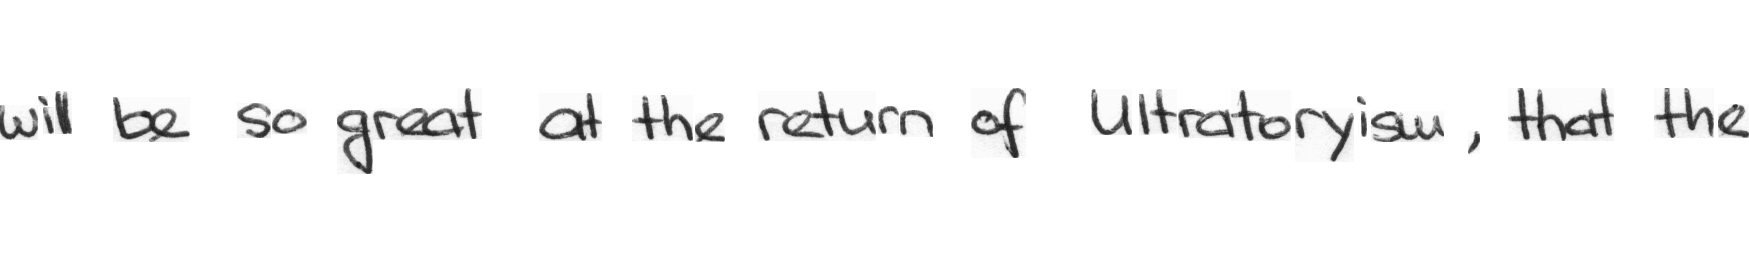 will be so great at the return of Ultratoryism, that the